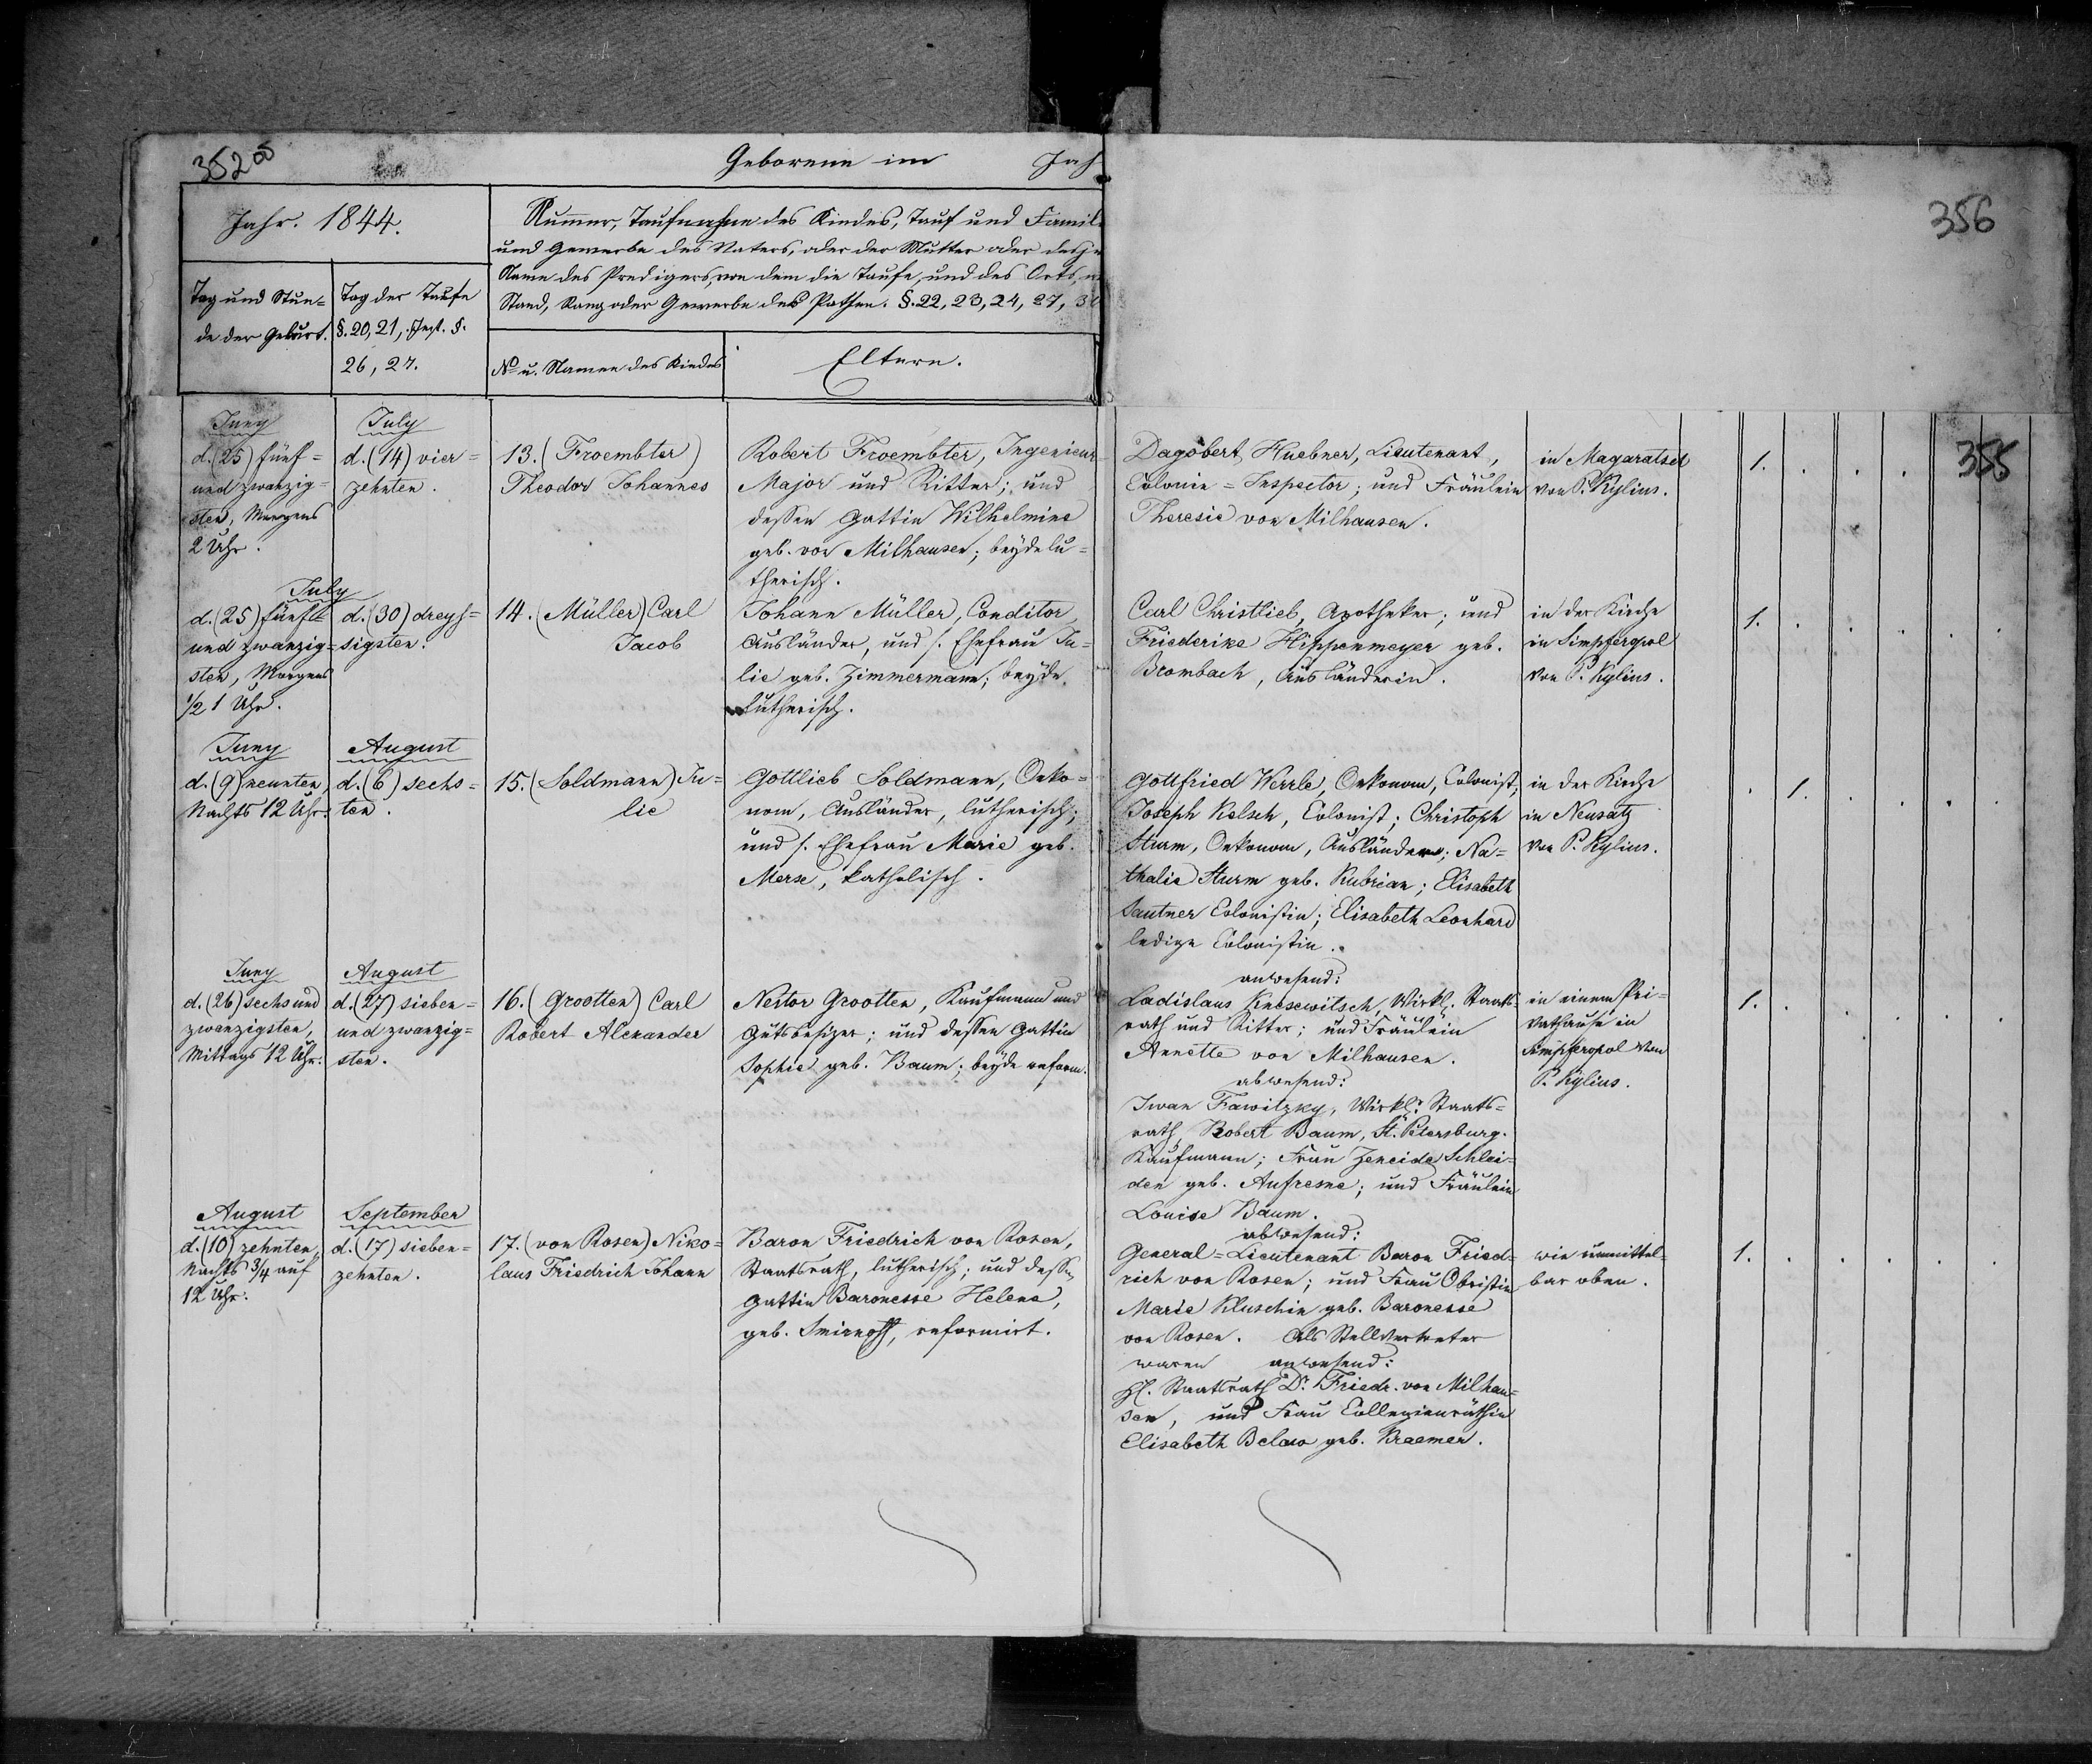 352 об
Geborene im Jah
356
Jahr. 1844.
Nummer, Taufnahme des Kindes, Tauf und Famil
und Gewerbe des Vaters, oder der Mutter oder des
Name des Predigers, von dem die Taufe, und des Orts,
Stand, Rang oder Gewerbe des Pathen. §. 22, 23, 24, 27, 3
Tag und Stun=
de der Geburt.
Tag der Taufe
§. 20, 21, Inst. §.
26, 27.
No u. Namen des Kindes
Eltern.
355
Juny
d. (25) fünf=
und zwanzig=
sten, Morgens
2 Uhr.
July
d. (14) vier=
zehnten.
13. (Froembter)
Theodor Johannes
Robert Froembter, Ingenieur=
Major und Ritter; und
dessen Gattin Wilhelmine
geb. von Milhausen; beyde lu=
therisch.
Dagobert Huebner, Lieutenant,
Colonie=Inspector; und Fräulein
Theresie von Milhausen.
in Magaratsch
von P. Kylius.
1. . . .
July
d. (25) fünf=
und zwanzig=
sten, Morgens
1/2 1 Uhr.
d. (30) dreys=
sigsten.
14. (Müller) Carl
Jacob
Johann Müller, Conditor,
Ausländer, und s. Ehefrau Ju=
lie geb. Zimmermann; beyde
lutherisch.
Carl Christlieb, Apotheker; und
Friederike Hippenmeyer geb.
Brombach, Ausländerin.
in der Kirche
in Simpferopol
von P. Kylius.
1. . . . . .
Juny
d. (9) neunten,
Nachts 12 Uhr.
August
d. (6) sechs=
ten.
15. (Soldmann) Ju=
lie
Gottlieb Soldmann, Oeko=
nom, Ausländer, lutherisch;
und s. Ehefrau Marie geb.
Merse, katholisch.
Gottfried Werrle, Oekonom, Colonist;
Joseph Kelsch, Colonist; Christoph
Sturm, Oekonom, Ausländer; Na=
thalie Sturm geb. Kubrian; Elisabeth
Sautner Colonistin; Elisabeth Leonhard
ledige Colonistin.
in der Kirche
in Neusatz
von P. Kylius.
. 1. . . . .
Juny
d. (26) sechs und
zwanzigsten,
Mittags 12 Uhr.
August
d. (27) sieben=
und zwanzig=
sten.
16. (Grootten) Carl
Robert Alexander
Nestor Grootten, Kaufmann und
Gutsbesizer; und dessen Gattin
Sophie geb. Baum; beyde reform.
anwesend:
Ladislaus Knesewitsch, Wirkl. Staats=
rath und Ritter; und Fräulein
Annette von Milhausen.
abwesend:
Iwan Fawitzky, Wirkl. Staats=
rath, Robert Baum, St. Petersburg.
Kaufmann; Frau Zeneide Schlei=
den geb. Aufresne; und Fräulein
Louise Baum.
in einem Pri=
vathause in
Simpferopol von
P. Kylius.
1. . . . . .
August
d. (10) zehnten,
Nachts 3/4 auf
12 Uhr.
September
d. (17) sieben=
zehnten.
17. (von Rosen) Niko=
laus Friedrich Johann
Baron Friedrich von Rosen,
Staatsrath, lutherisch; und dessen
Gattin Baronesse Helene,
geb. Smirnoff, reformirt.
abwesend:
General=Lieutenant Baron Fried=
rich von Rosen; und Frau Obristin
Marie Kluschin geb. Baronesse
von Rosen. Als Stellvertreter
waren anwesend:
H. Staatsrath Dr. Friedr. von Milhau=
sen, und Frau Collegienräthin
Elisabeth Belaw geb. Kraemer.
wie unmittel=
bar oben.
1. . . . . .